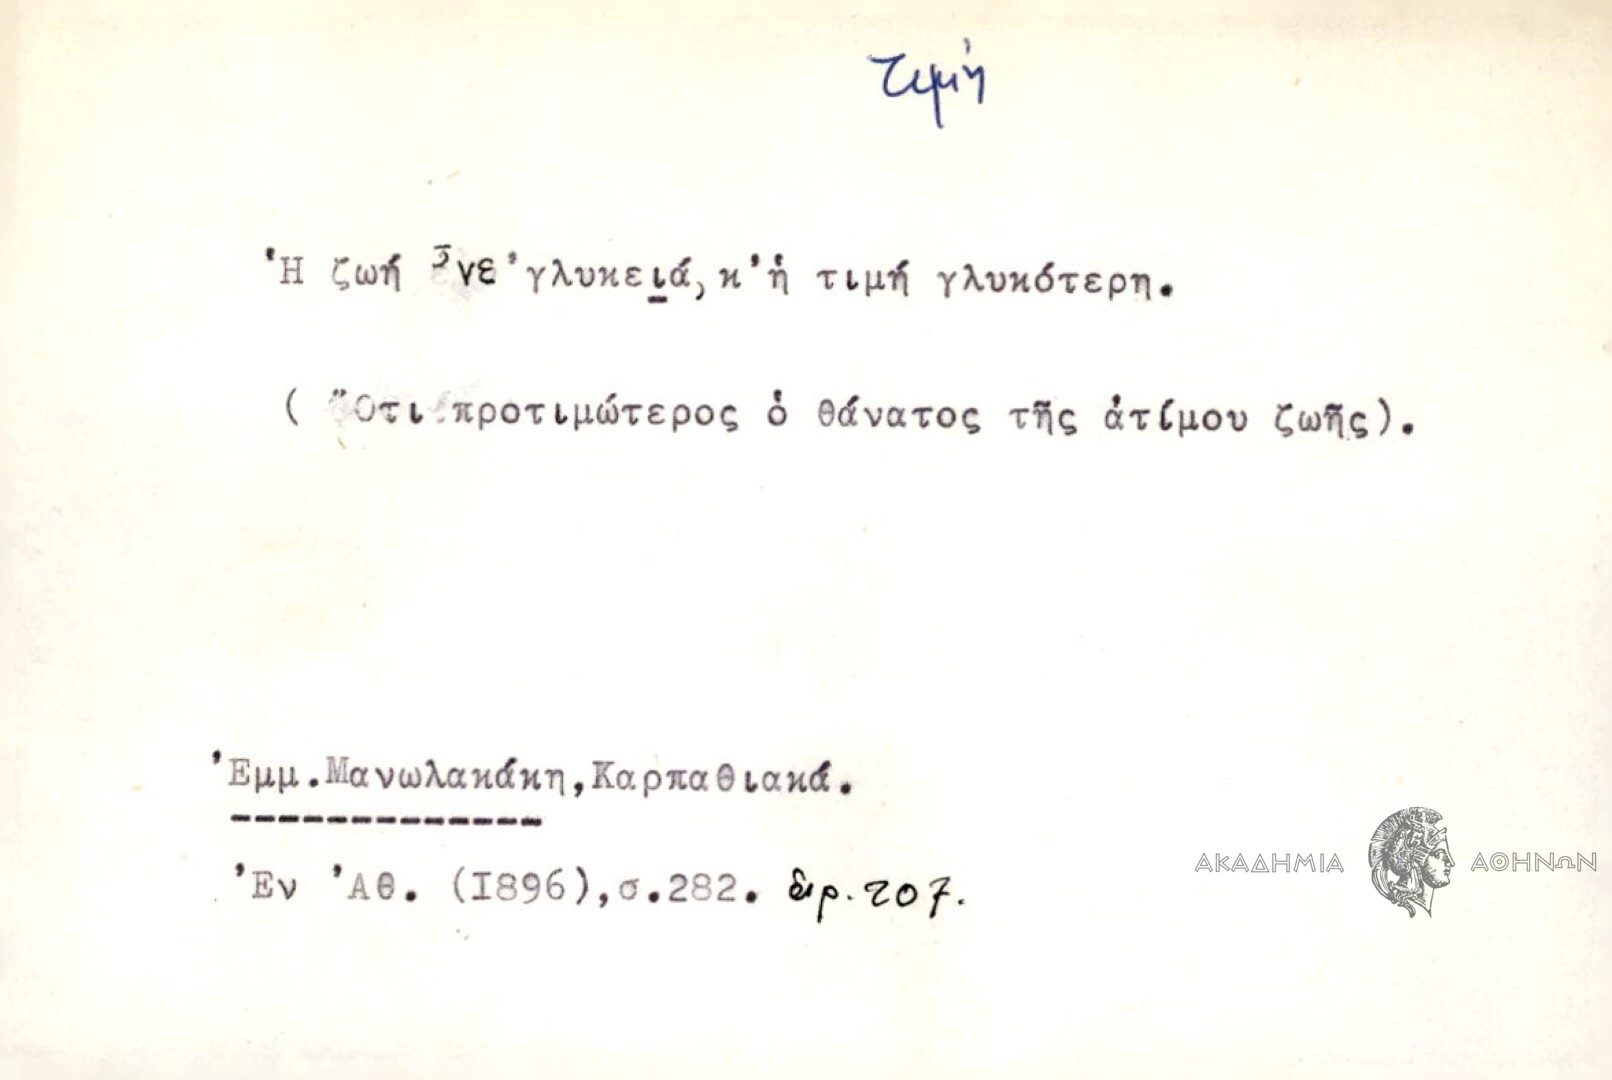 τιμή
Ἡ ζωή 'νε 'γλυκειά, κ' ἡ τιμή γλυκότερη.
( Ὅτι προτιμώτερος ὁ θάνατος τῆς ἀτίμου ζωῆς).
Ἐμμ. Μανωλακάκη, Καρπαθιακά.
Ἐν Ἀθ. (1896), σ. 282. ἀρ. 207.
ΑΚΑΔΗΜΙΑ ΑΘΗΝΩΝ